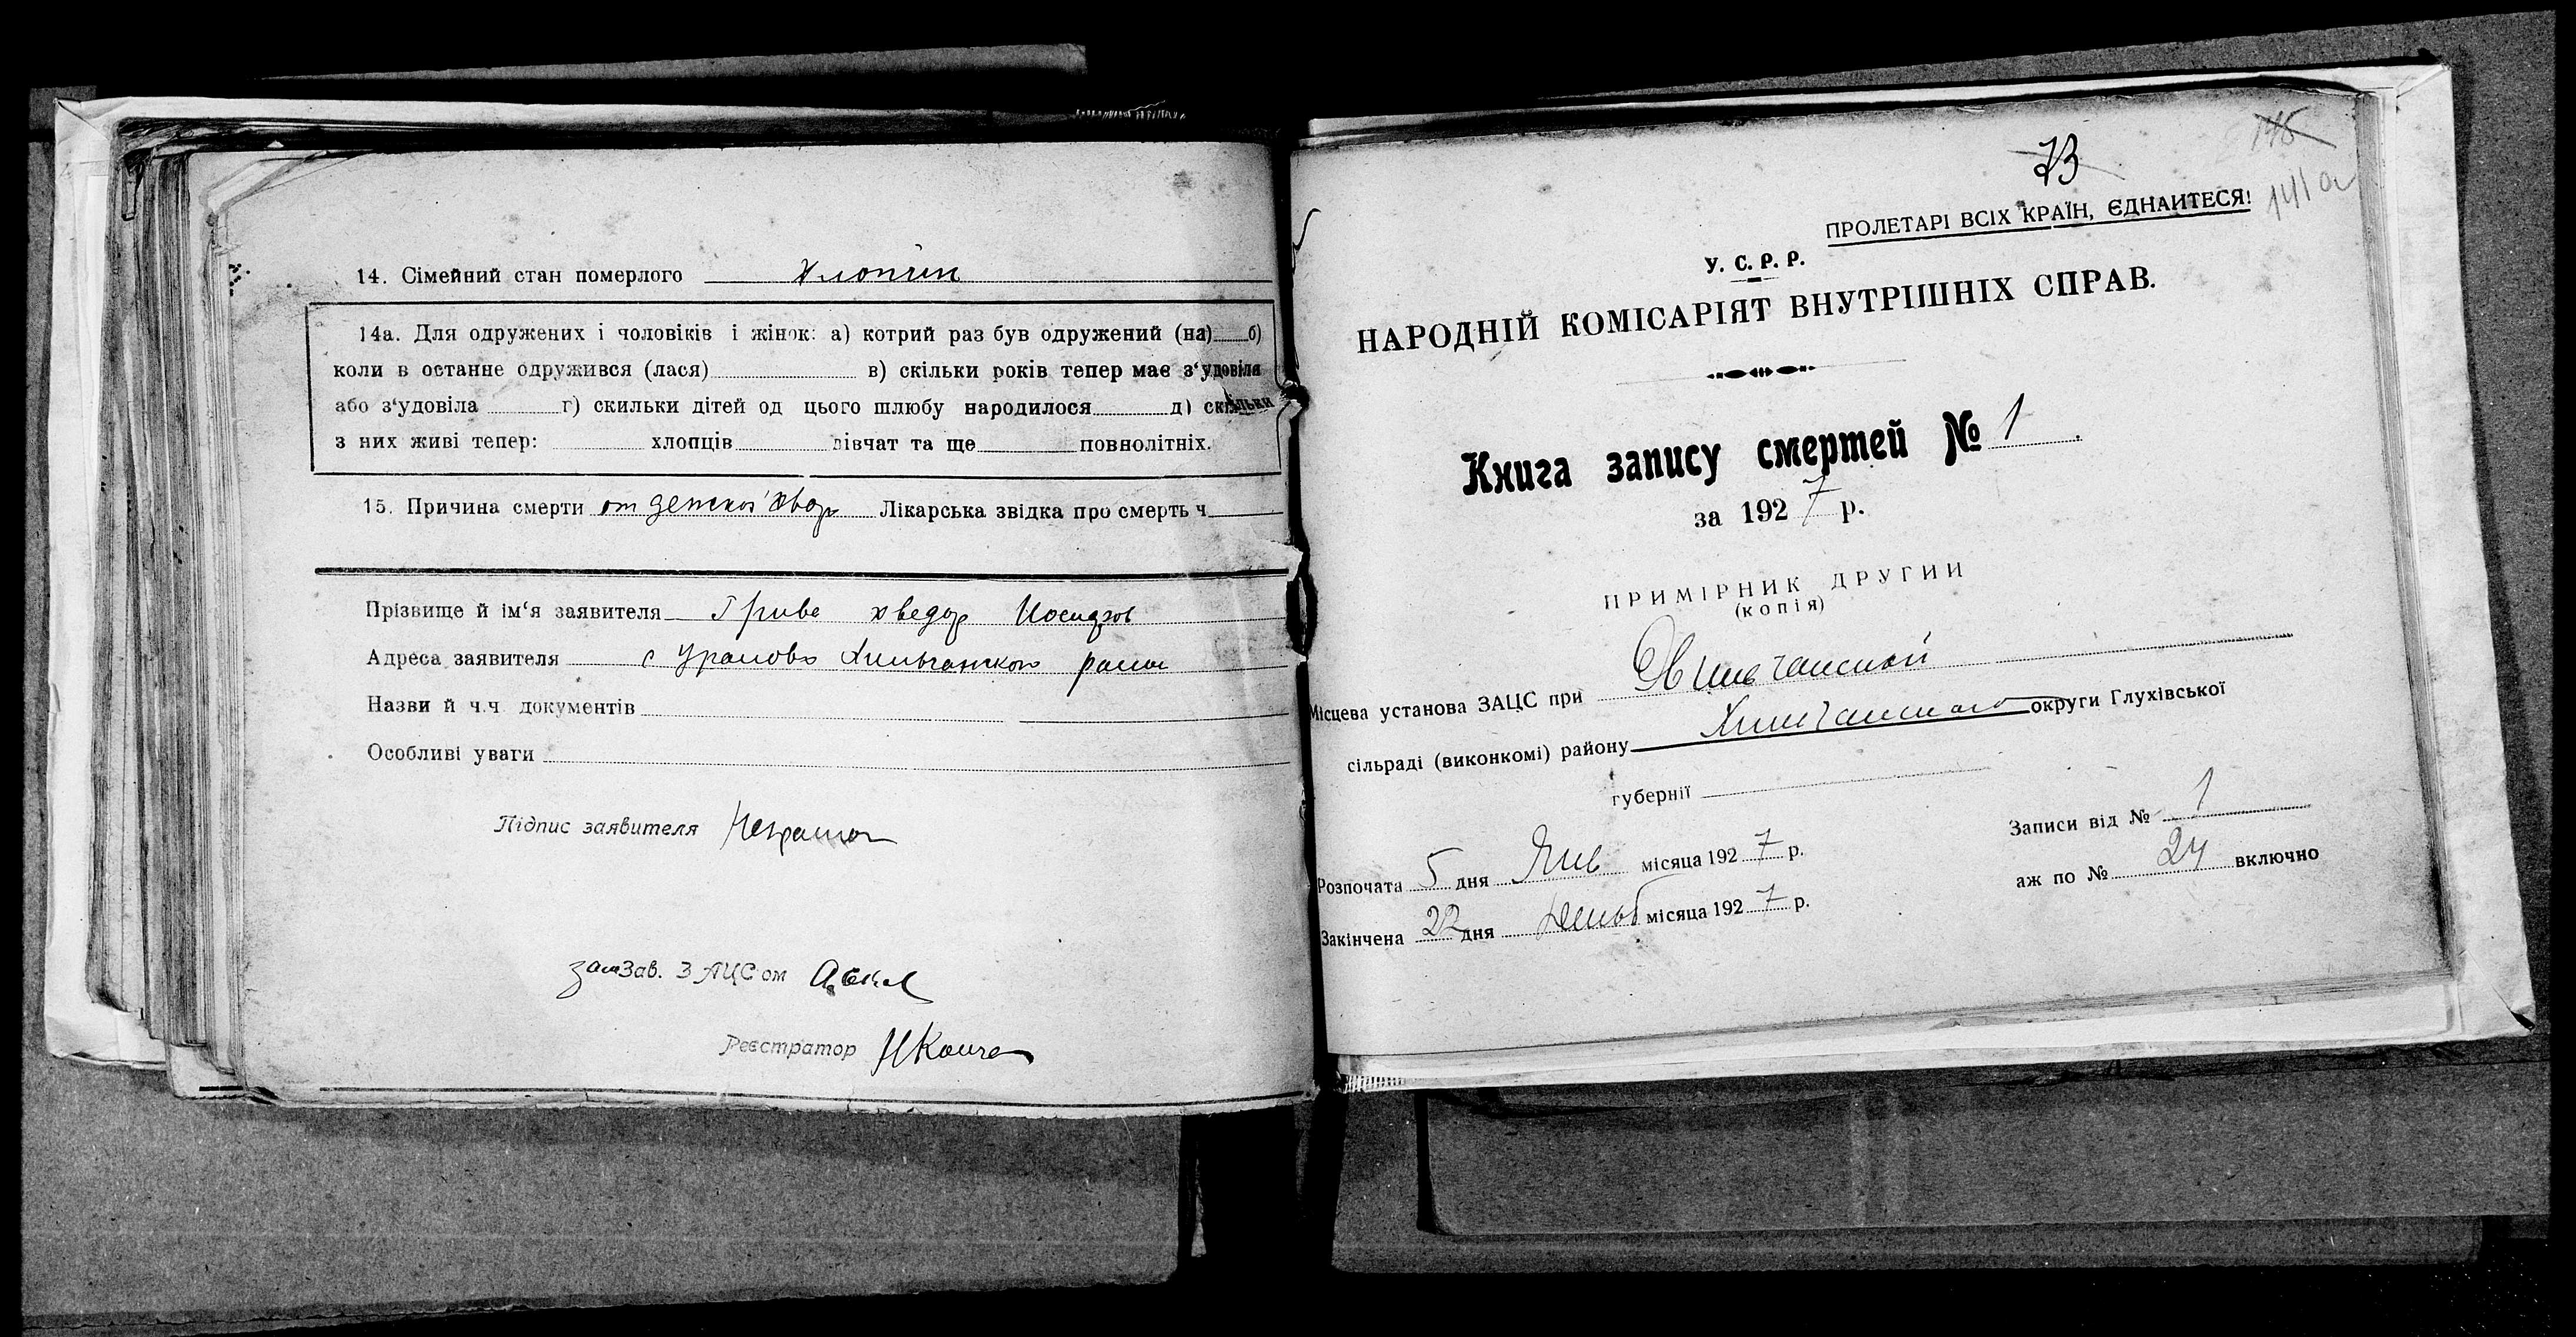 14. Сімейний стан померлого хлопчик
14а. Для одружених і чоловіків і жінок: а) котрий раз був одружений (на) б)
коли в останне одружився (лася) в) скільки років тепер має з'удовіла
або з'удовіла г) скильки дітей од цього шлюбу народилося д) скільки
з них живі тепер: хлопців дівчат та ще повнолітніх.
15. Причина смерти от детской хвор Лікарська звідка про смерть ч.
Прізвище й ім'я заявителя Грива хведор
Адреса заявителя с района
Назви й ч.ч документів
Особливі уваги
Підпис заявителя
зам Зав. ЗАЦС'ом
Реєстратор
73
148
141 а
ПРОЛЕТАРІ ВСІХ КРАЇН, ЄДНАЙТЕСЯ!
У. С. Р. Р.
НАРОДНІЙ КОМІСАРІЯТ ВНУТРІШНІХ СПРАВ.
Книга запису смертей № 1.
за 1927 р.
ПРИМІРНИК ДРУГИЙ
(копія)
Місцева установа ЗАЦС при
сільраді (виконкомі) району округи Глухівської
губернії
Розпочата 5 дня Янв місяца 1927 р.
Закінчена 22 дня місяца 1927 р.
Записи від № 1
аж по № 24 включно